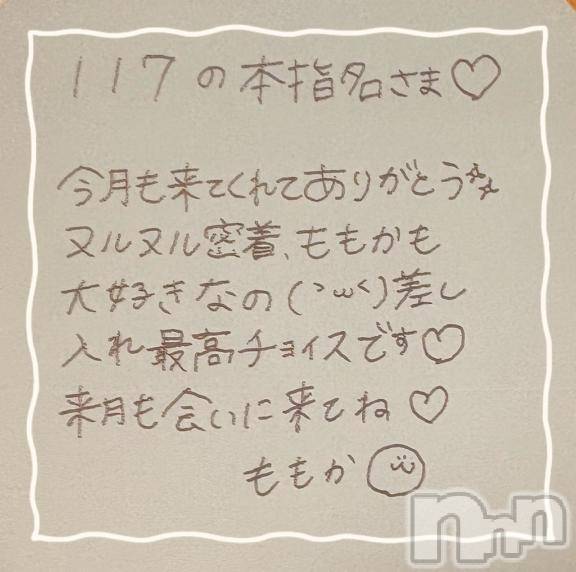 117の本指名さま♡
今月も来てくれてありがとう☆☆
ヌルヌル密着、ももかも
大好きなの(>ω<)差し
入れ最高チョイスです♡
来月も会いに来てね♡
ももか
nnn